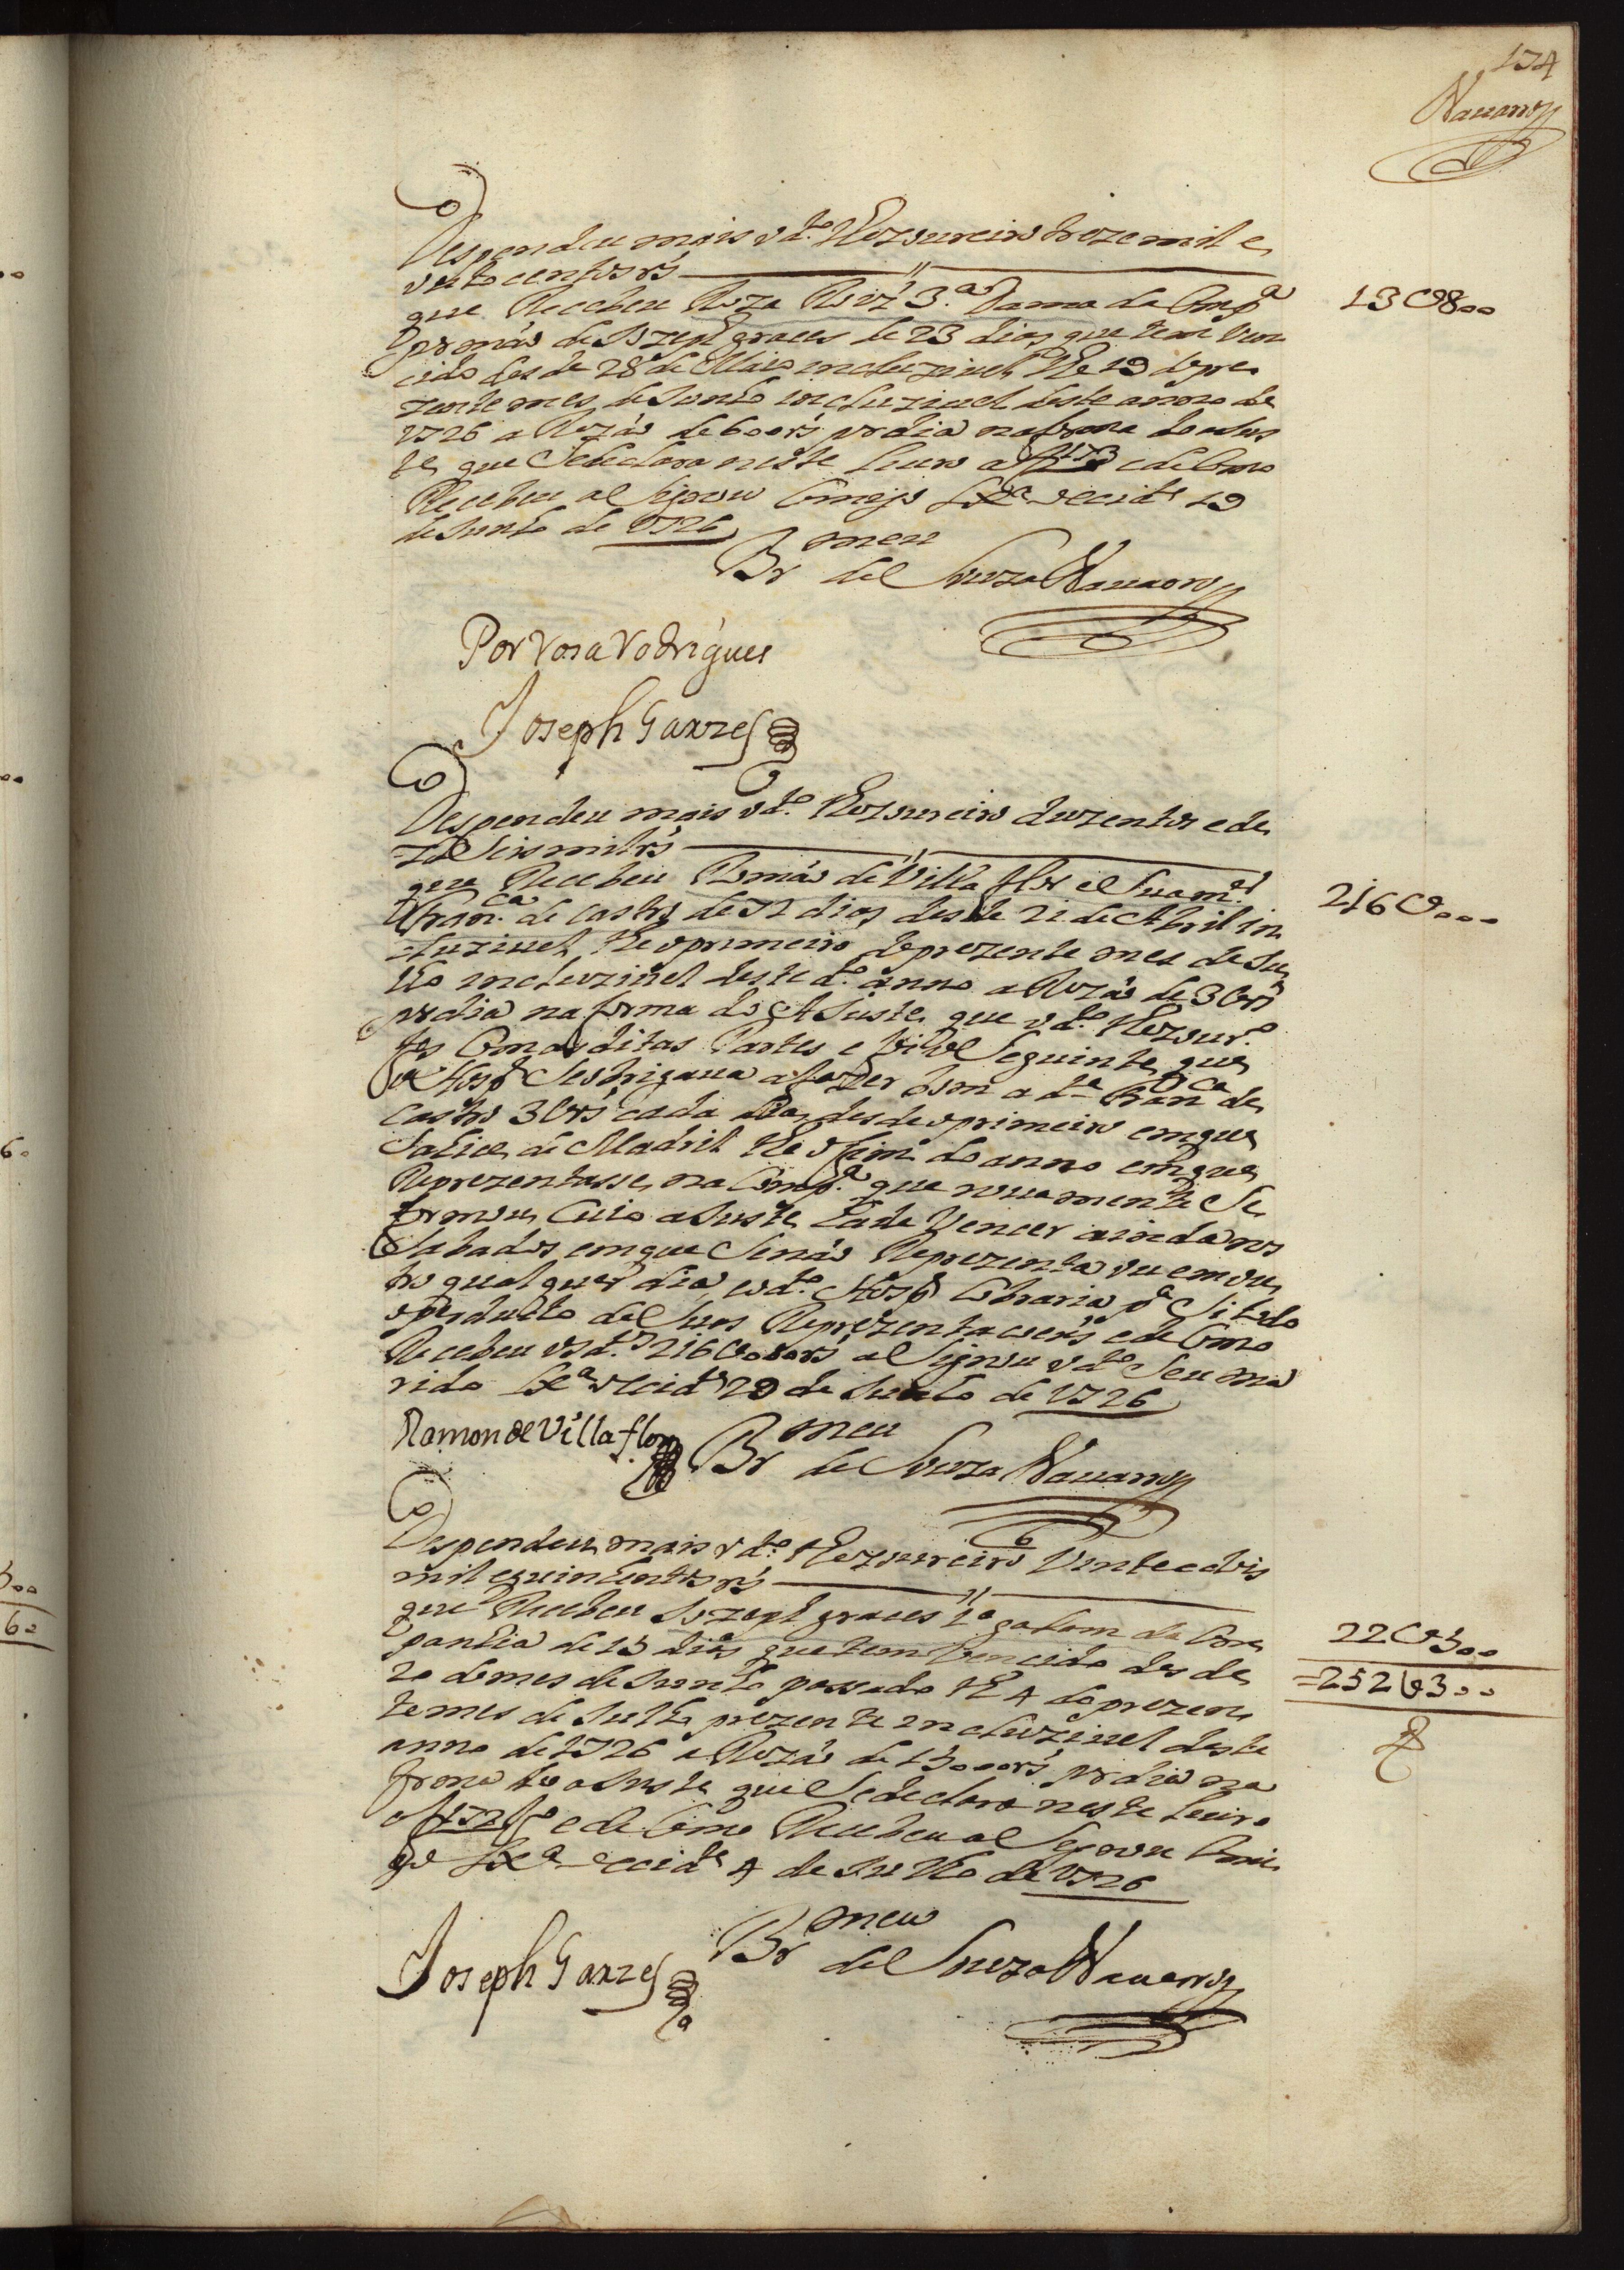 174
Nauarro
Despendeu mais o d.º Thezoureiro treze mil e
outo centos rs
que Recebeu Roza Roiz 3.ª Dama da Comp.ª
por mão de Jozeph graces de 23 dias que tem ven
cido des de 28 de Maio incluziuel thé 19 do pre
zente mes de Junho incluziuel deste anno de
1726 a Rezão de 600 rs por dia na forma do ajus
te que se declara neste Liuro a f 173 e de Como
Recebeu asignou Comigo Lx.ª occid.al 19
de Junho de 1726
13U800
B.ar meu de Souza Nauarro
Por rosa rodrigues
Joseph Garzes
Despendeu mais o d.º Thezoureiro duzentos e de
zaseis mil rs
que Recebeu Remão de Villa flor e Sua m.er
Fran.ca de castro de 72 dias desde 21 de Abril in
cluziuel the o primeiro do prezente mes de Ju
lho incluziuel deste d.º anno a Rezão de 3U rs
por dia na forma do Ajuste que o d.º Thezour.º
fes Com as ditas Partes e he o Seguinte que
o Hosp.al Se obrigaua a fazer bom a d.ª Fran.ca de
castro 3U rs cada dia desde o primeiro em que
Sahice de Madrit the o fim do anno em que
Reprezentasse na Comp.ª que nouamente Se
formou Cuio ajuste hade Vencer ainda nos
Sabados em que Se não Reprezenta ou em ou
tro qual quer dia, e o d.º Hosp.al Cobraria p.ª Si todo
o produto de Suas Reprezentacoens e de Como
Recebeu os d.os 216U000 rs asignou o d.º Seu ma
rido Lx.ª occid.al 29 de Julho de 1726
216U000
Ramon de Villaflor
B.ar meu de Souza Nauarro
Despendeu mais o d.º Thezoureiro Vinte e dois
mil e quinhentos rs
que Recebeu Jozeph graces 1.º galam da Com
panhia de 15 dias que tem Vencido des de
20 do mes de Junho passado thé 4 do prezen
te mes de Julho prezente incluziuel deste
anno de 1726 a Rezão de 1500 rs por dia na
forma do ajuste que Se declara neste Liuro
a f 172 e de Como Recebeu asignou Comi
go Lx.ª occid.al 4 de Julho de 1726
22U500
=252U300
Joseph Garzes
B.ar meu de Souza Nauarro